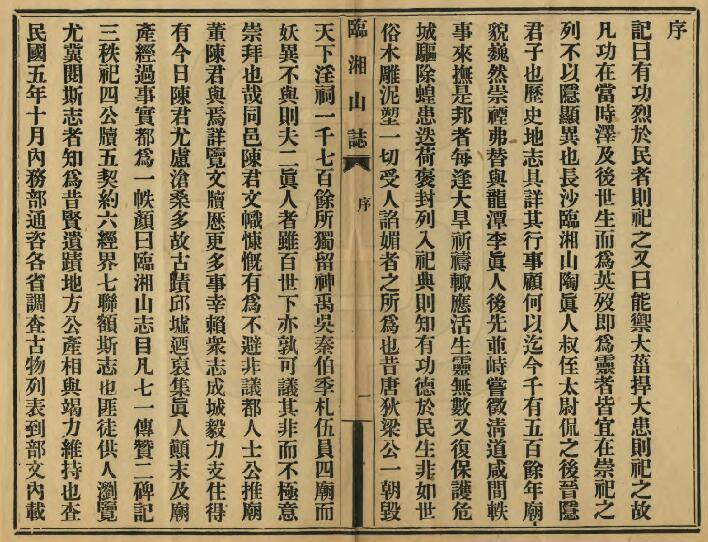 序
記曰有功烈於民者則祀之又曰能禦大菑捍大患則祀之故
凡功在當時澤及後世生而爲英歿即爲靈者皆宜在崇祀之
列不以隱顯異也長沙臨湘山陶眞人叔侄太尉侃之後晉隱
君子也歷史地志具詳其行事顧何以迄今千有五百餘年廟
貌巍然崇禋弗替與龍潭李眞人後先並峙嘗徵淸道咸間軼
事來撫是邦者每逢大旱祈禱輒應活生靈無數又復保護危
城驅除蝗患迭荷褒封列入祀典則知有功德於民生非如世
俗木雕泥塑一切受人諂媚者之所爲也昔唐狄梁公一朝毀
臨湘山誌
序
一
天下淫祠一千七百餘所獨留神禹吳泰伯季札伍員四廟而
妖異不與則夫二眞人者雖百世下亦孰可議其非而不極意
崇拜也哉同邑陳君文幟慷慨有爲不避非議都人士公推廟
董陳君與焉詳覽文牘歷更多事幸賴衆志成城毅力支住得
有今日陳君尤慮滄桑多故古蹟邱墟迺裒集眞人顚末及廟
產經過事實都爲一帙顏曰臨湘山志目凡七一傳贊二碑記
三秩祀四公牘五契約六經界七聯額斯志也匪徒供人瀏覽
尤冀閱斯志者知爲昔賢遺蹟地方公產相與竭力維持也查
民國五年十月內務部通咨各省調查古物列表到部文內載